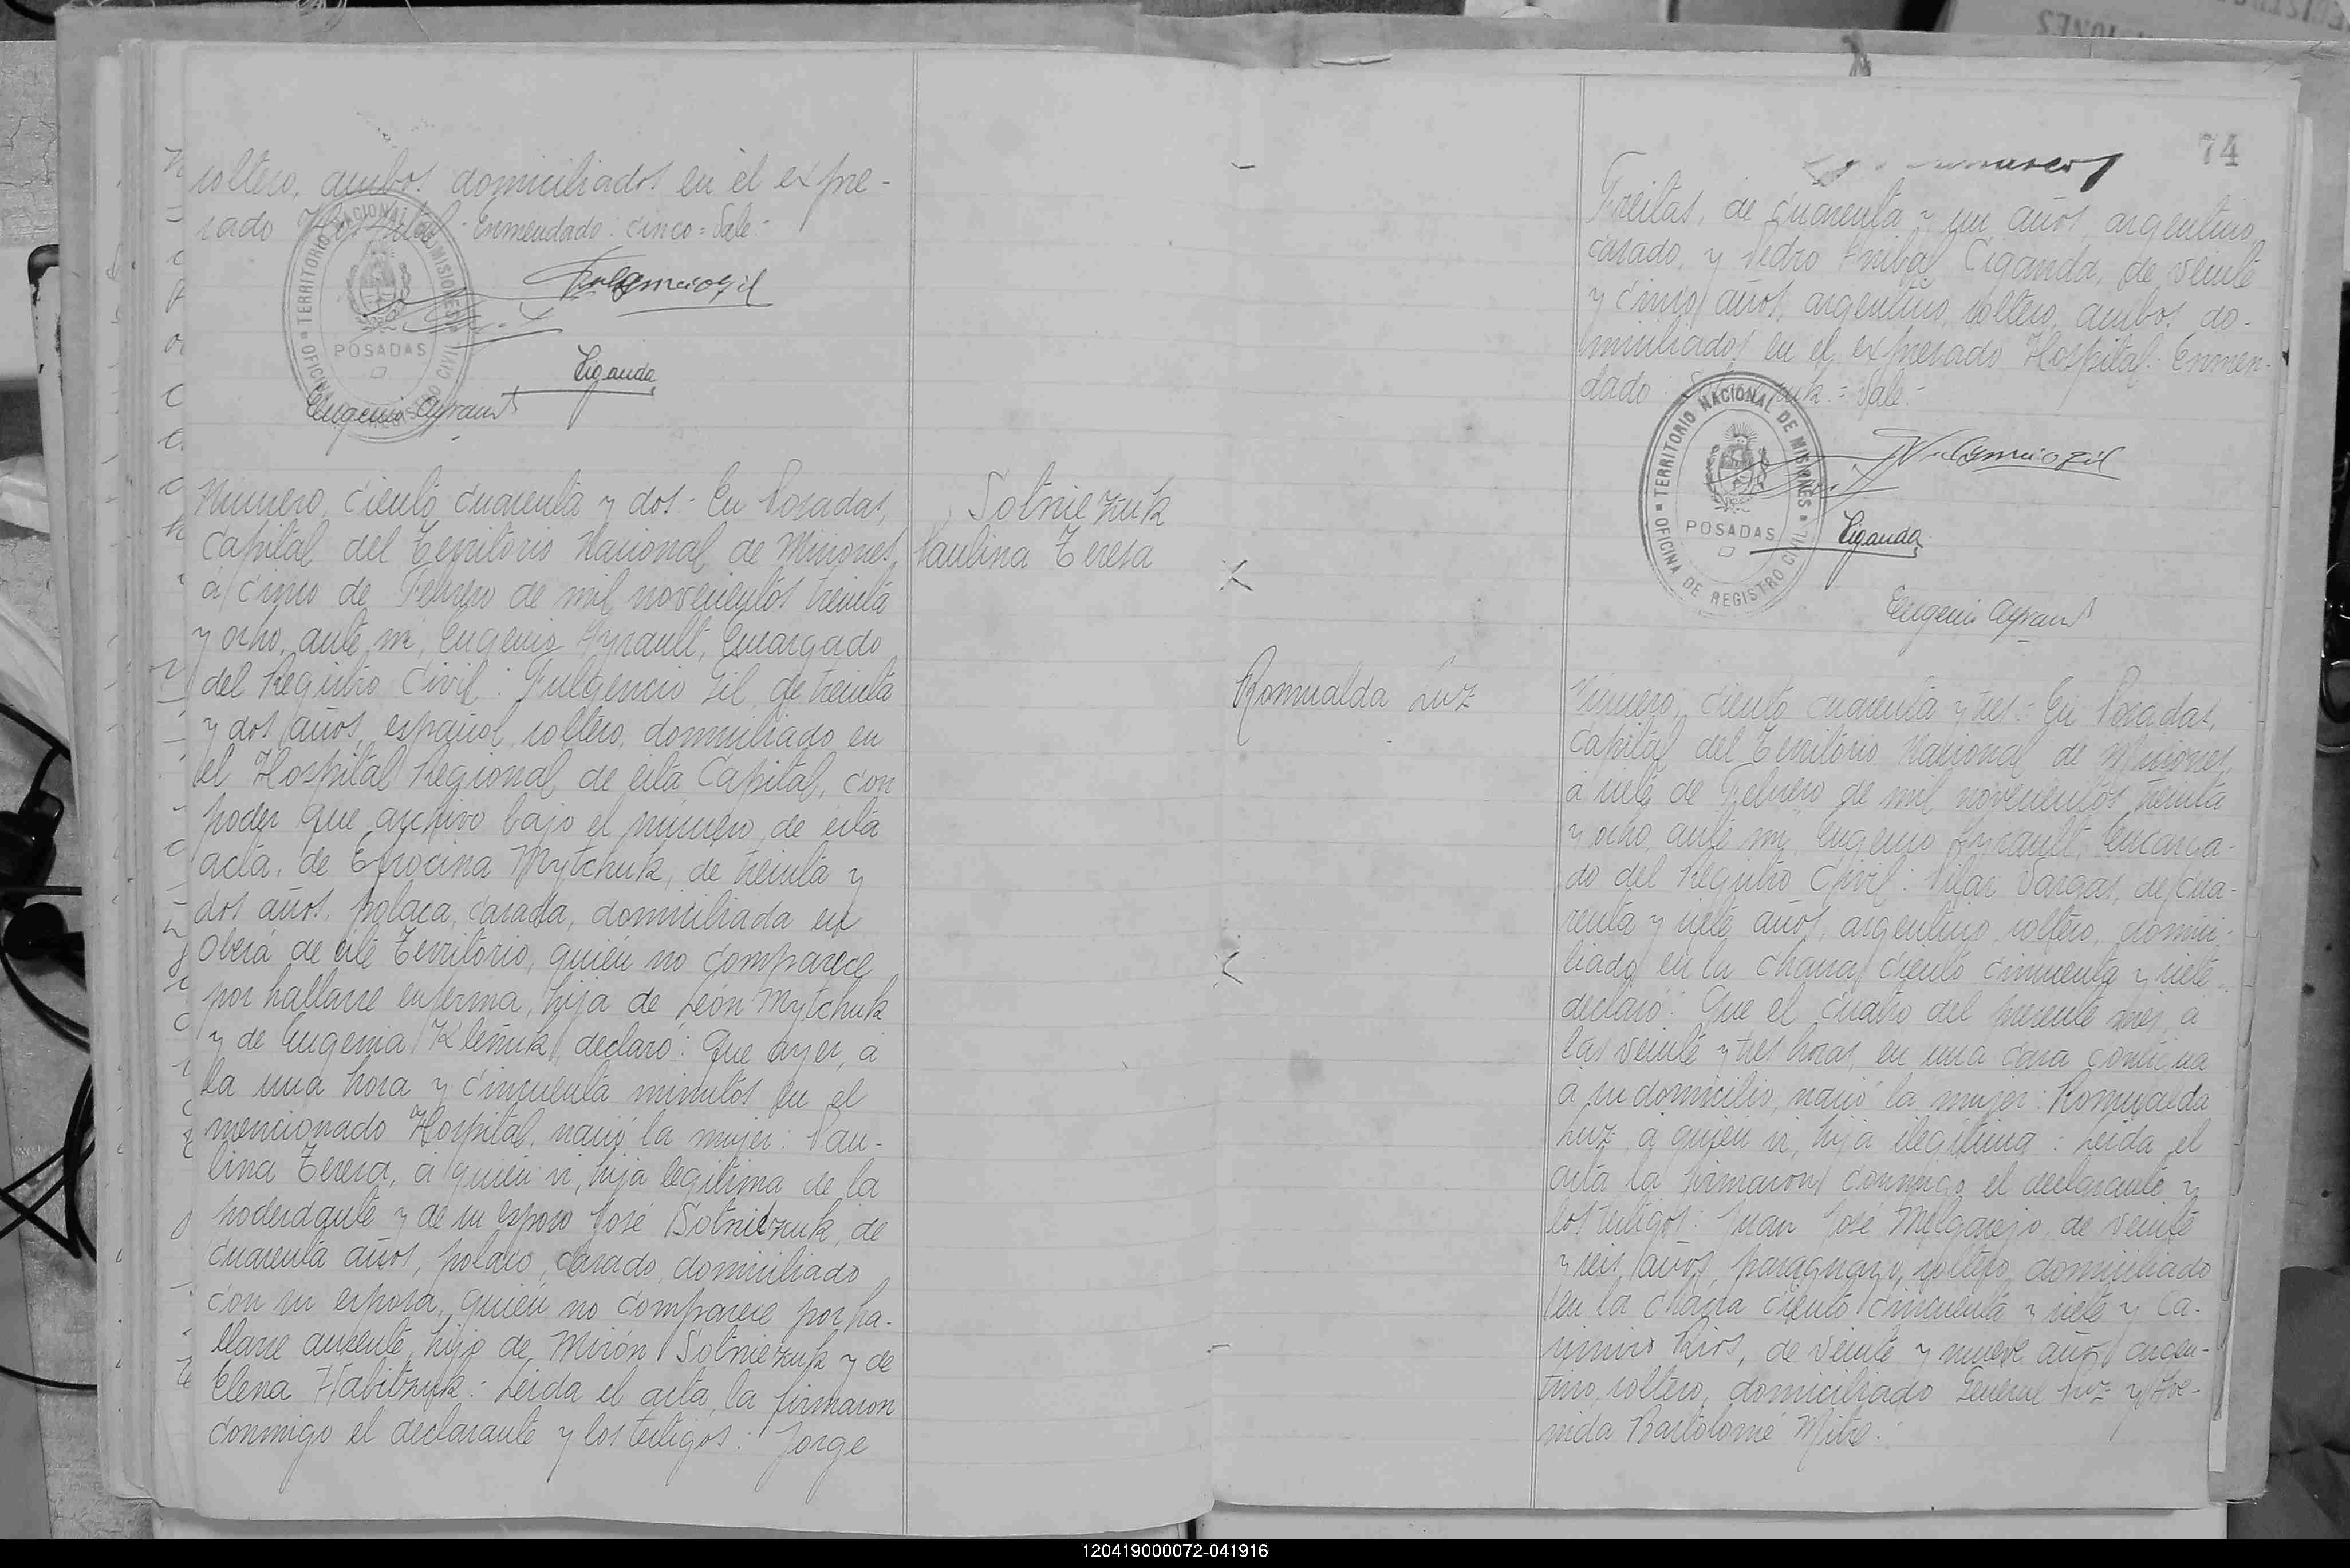 soltero, ambos domiciliados en el expre-
sado Hospital - Enmendado: cinco = Vale -
TERRITORIO NACIONAL DE MISIONES
OFICINA DE REGISTRO CIVIL
POSADAS
Fulgencio Gil
Ciganda
Eugenio Ayrault
Número ciento cuarenta y dos - En Posadas,
Capital del Territorio Nacional de Misiones,
a cinco de Febrero de mil novecientos treinta
y ocho, ante mi, Eugenio Ayrault, Encargado
del Registro Civil: Fulgencio Gil, de treinta
y dos años, español, soltero, domiciliado en
el Hospital Regional de esta Capital, con
poder que archivo bajo el número de esta
acta, de Efrocina Mytchuk, de treinta y
dos años, polaca, casada, domiciliada en
Oberá de este Territorio, quién no comparece
por hallarse enferma, hija de León Mytchuk
y de Eugenia Kleñuk, declaró: Que ayer, a
la una hora y cincuenta minutos en el
mencionado Hospital, nació la mujer: Pau-
lina Teresa, a quién vi, hija legítima de la
poderdante y de su esposo José Sotniezuk, de
cuarenta años, polaco, casado, domiciliado
con su esposa, quién no comparece por ha-
llarse ausente, hijo de Mirón Sotniezuk y de
Elena Habitzuk: Leída el acta, la firmaron
conmigo el declarante y los testigos: Jorge
Sotniezuk
Paulina Teresa
74
Freitas, de cuarenta y un años, argentino,
casado, y Pedro Anibal Ciganda, de veinte
y cinco años, argentino, soltero, ambos do-
miciliados en el expresado Hospital: Enmen-
dado: = Vale -
TERRITORIO NACIONAL DE MISIONES
OFICINA DE REGISTRO CIVIL
POSADAS
Fulgencio Gil
Ciganda
Eugenio Ayrault
Romualda Luz
Número ciento cuarenta y tres - En Posadas,
Capital del Territorio Nacional de Misiones,
a siete de Febrero de mil novecientos treinta
y ocho, ante mi, Eugenio Ayrault, Encarga-
do del Registro Civil: Pilar Vargas, de cua-
renta y siete años, argentino, soltero, domici-
liado en la chacra ciento cincuenta y siete
declaró: Que el cuatro del presente mes, a
las veinte y tres horas, en una casa contigua
a su domicilio, nació la mujer: Romualda
Luz, a quien vi, hija ilegítima: Leída el
acta la firmaron conmigo el declarante y
los testigos: Juan José Melgarejo, de veinte
y seis años, paraguayo, soltero, domiciliado
en la chacra ciento cincuenta y siete y Ca-
simiro Rios, de veinte y nueve años, argen-
tino, soltero, domiciliado General Paz y Ave-
nida Bartolomé Mitre.
120419000072-041916